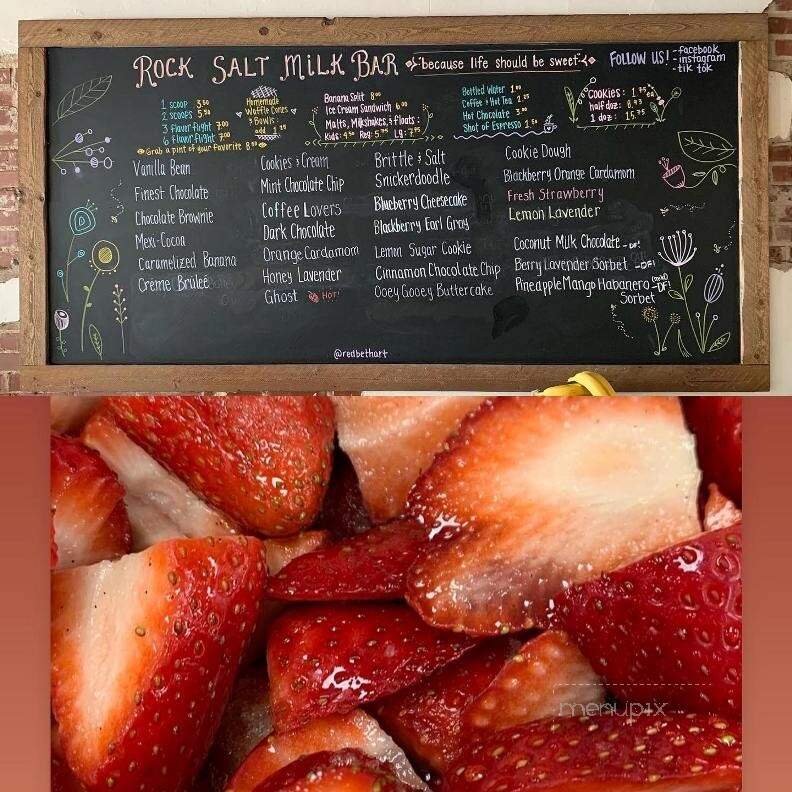 ROCK SALT MILK BAR
"because life should be sweet"
FOLLOW US! - facebook
- instagram
- tik tok
1 scoop 3.50
2 scoops 5.50
3 flavor flight 7.00
6 flavor flight
Grab a pint of your favorite
Homemade
Waffle Cones
& Bowls:
add
Banana Split 8.00
Ice Cream Sandwich 6.00
Malts, Milkshakes, & Floats:
Kids: Reg: Lg:
Bottled Water
Coffee & Hot Tea
Hot Chocolate
Shot of Espresso
Cookies:
half doz:
1 doz: 15.75
Vanilla Bean
Finest Chocolate
Chocolate Brownie
Mexi-Cocoa
Caramelized Banana
Crème Brûleé
Cookies & Cream
Mint Chocolate Chip
Coffee Lovers
Dark Chocolate
Orange Cardamom
Honey Lavender
Ghost HOT!
Brittle & Salt
Snickerdoodle
Blueberry Cheesecake
Blackberry Earl Gray
Lemon Sugar Cookie
Cinnamon Chocolate Chip
Ooey Gooey Buttercake
Cookie Dough
Blackberry Orange Cardamom
Fresh Strawberry
Lemon Lavender
Coconut Milk Chocolate - DF!
Berry Lavender Sorbet - DF!
Pineapple Mango Habanero - DF!
Sorbet
@redbethart
menupix